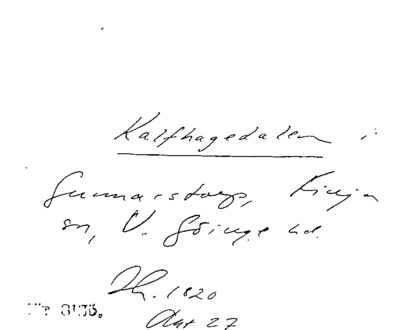 Kalfhagedalen i
Gunnarstorp, Finja
sn, V. Göinge hd.
Th. 1820
Akt 27